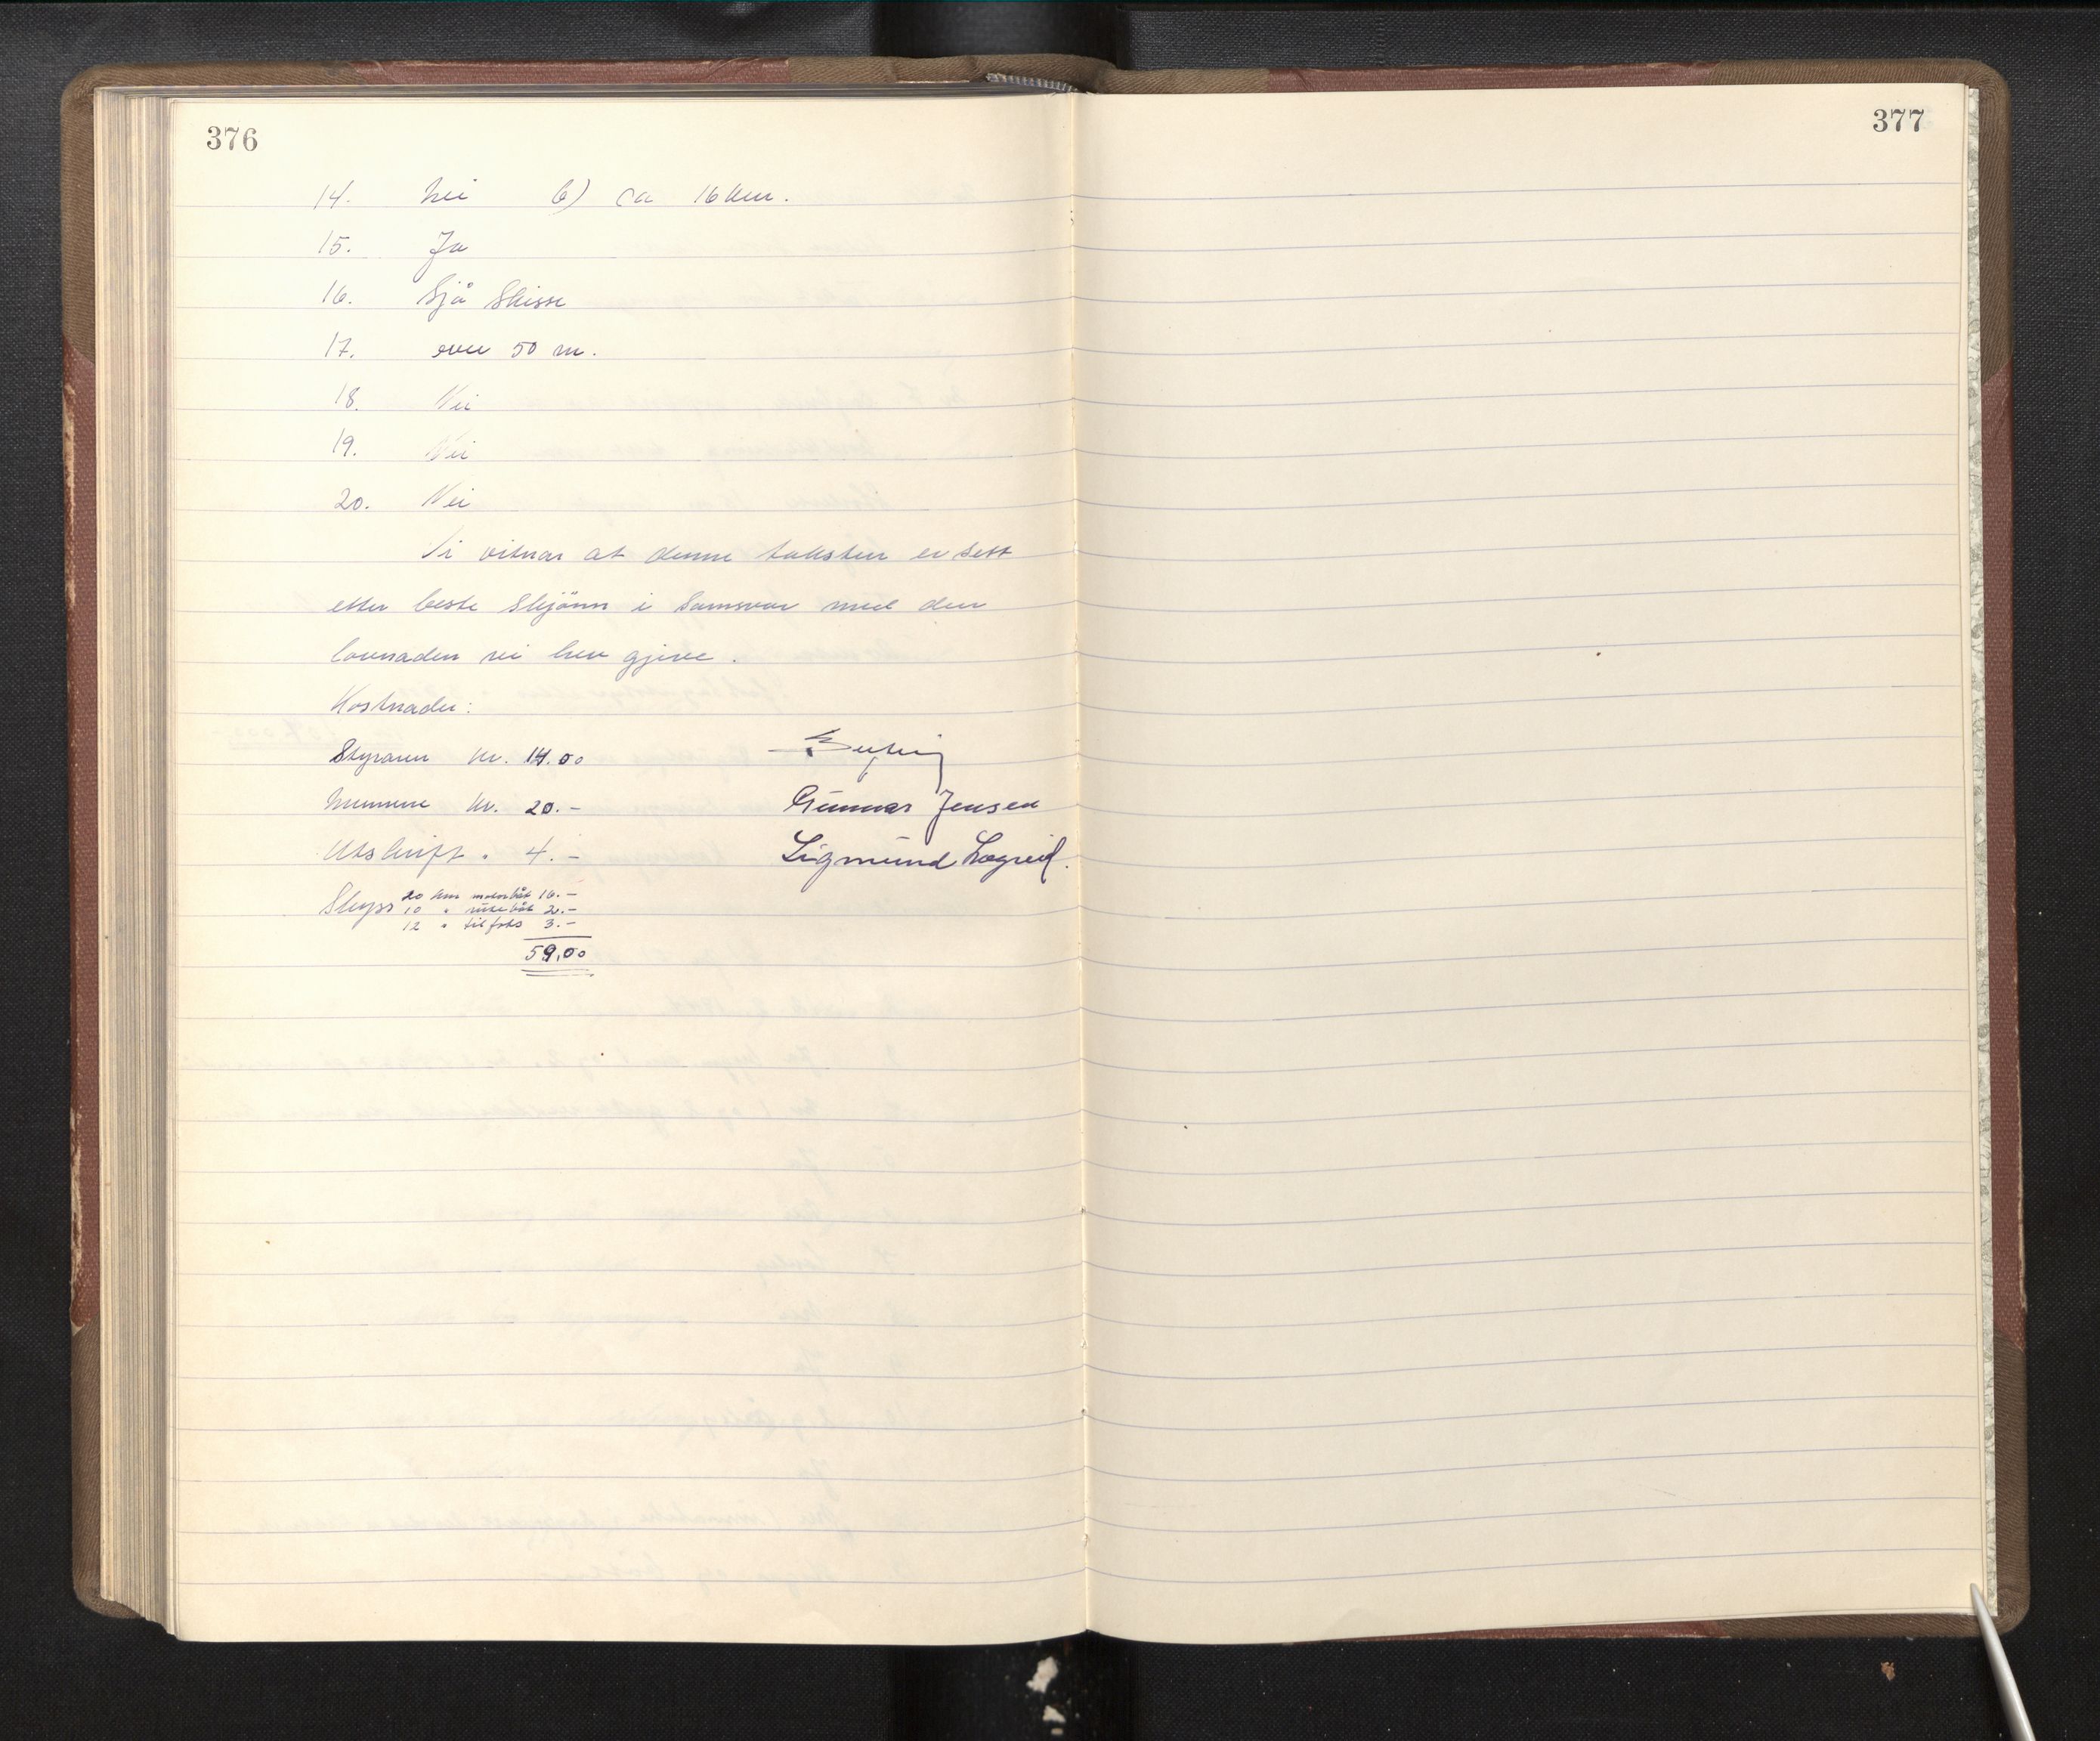 376
377
14. Nei b) ca 16 km.
15. Ja
16. Sjå Skisse
17. over 50 m.
18. Nei
19. Nei
20. Nei
Vi vitnar at denne taksten er sett
etter beste skjönn i samsvar med den
lovnaden vi hev gjeve.
Kostnader:
Styraren kr. 14.00
Mennene kr. 20.-
Gunnar Jensen
Utskrift " 4.-
Sigmund Lægreid.
Skyss 20 km motorbåt 16.-
10 " rutebåt 2.-
12 " til fots 3.-
59,00